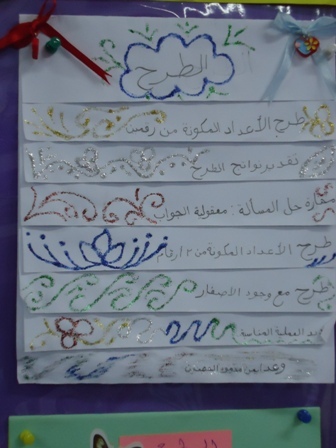 الطرح
طرح الأعداد المكونة من رقمين
تقدير نواتج الطرح
مهارة حل المسألة : معقولية الجواب
طرح الأعداد المكونة من ٣ أرقام
الطرح مع وجود الأصفار
العملية المناسبة